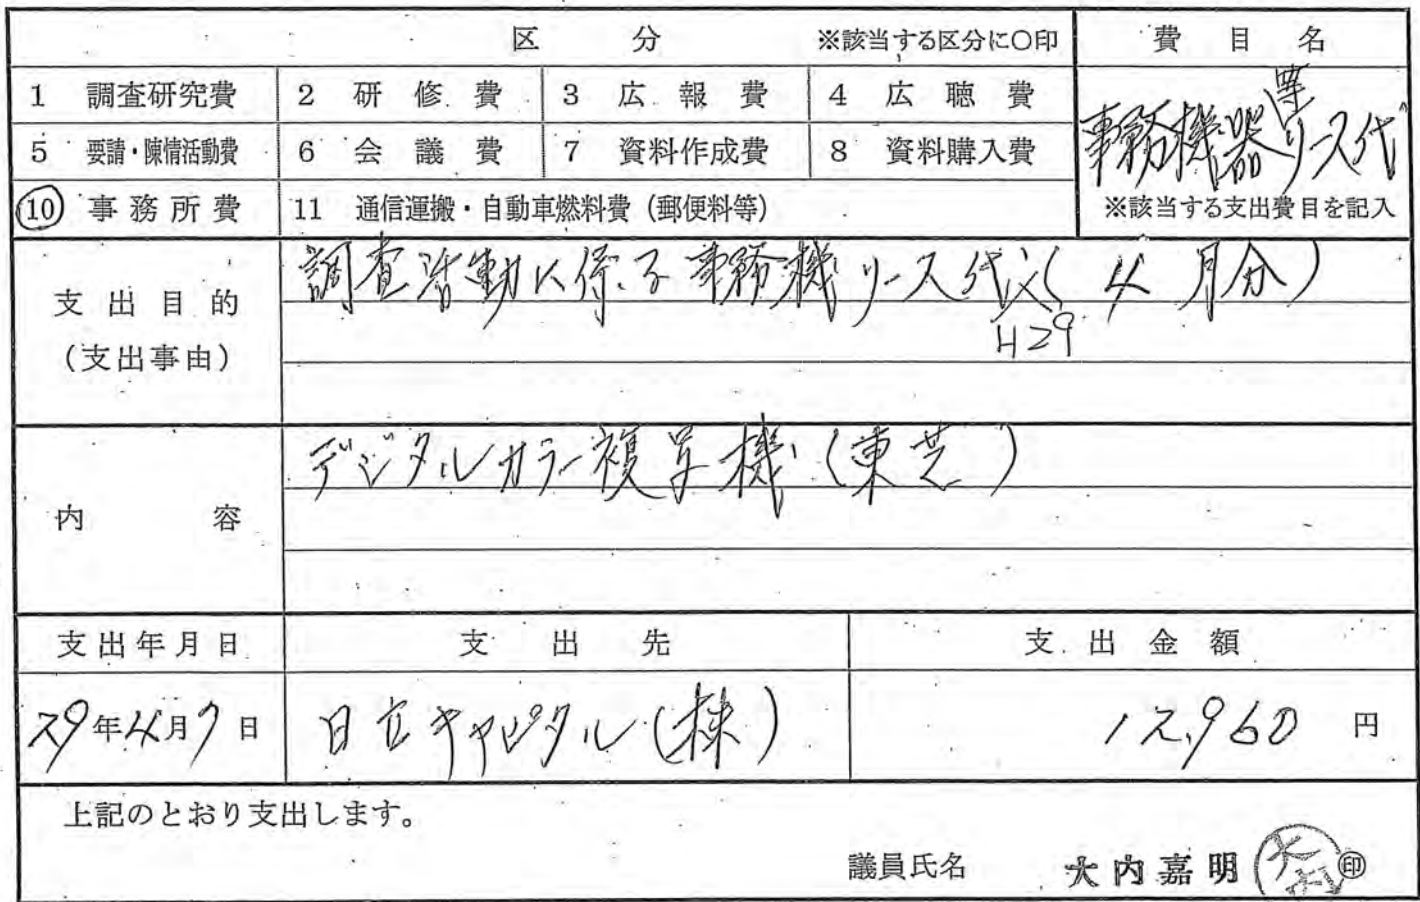 区 分 ※該当する区分に○印 費目名
1 調査研究費 2 研修費 3 広報費 4 広聴費
事務機器等リース代
5 要請・陳情活動費 6 会議費 7 資料作成費 8 資料購入費
10 事務所費 11 通信運搬・自動車燃料費(郵便料等) ※該当する支出費目を記入
支出目的
(支出事由)
調査活動に係る事務機リース代(4月分)
H29
内容
デジタルカラー複写機(東芝)
支出年月日 支出先 支出金額
29年4月7日 日立キャピタル(株) 12,960円
上記のとおり支出します。
議員氏名 大内嘉明 ㊞